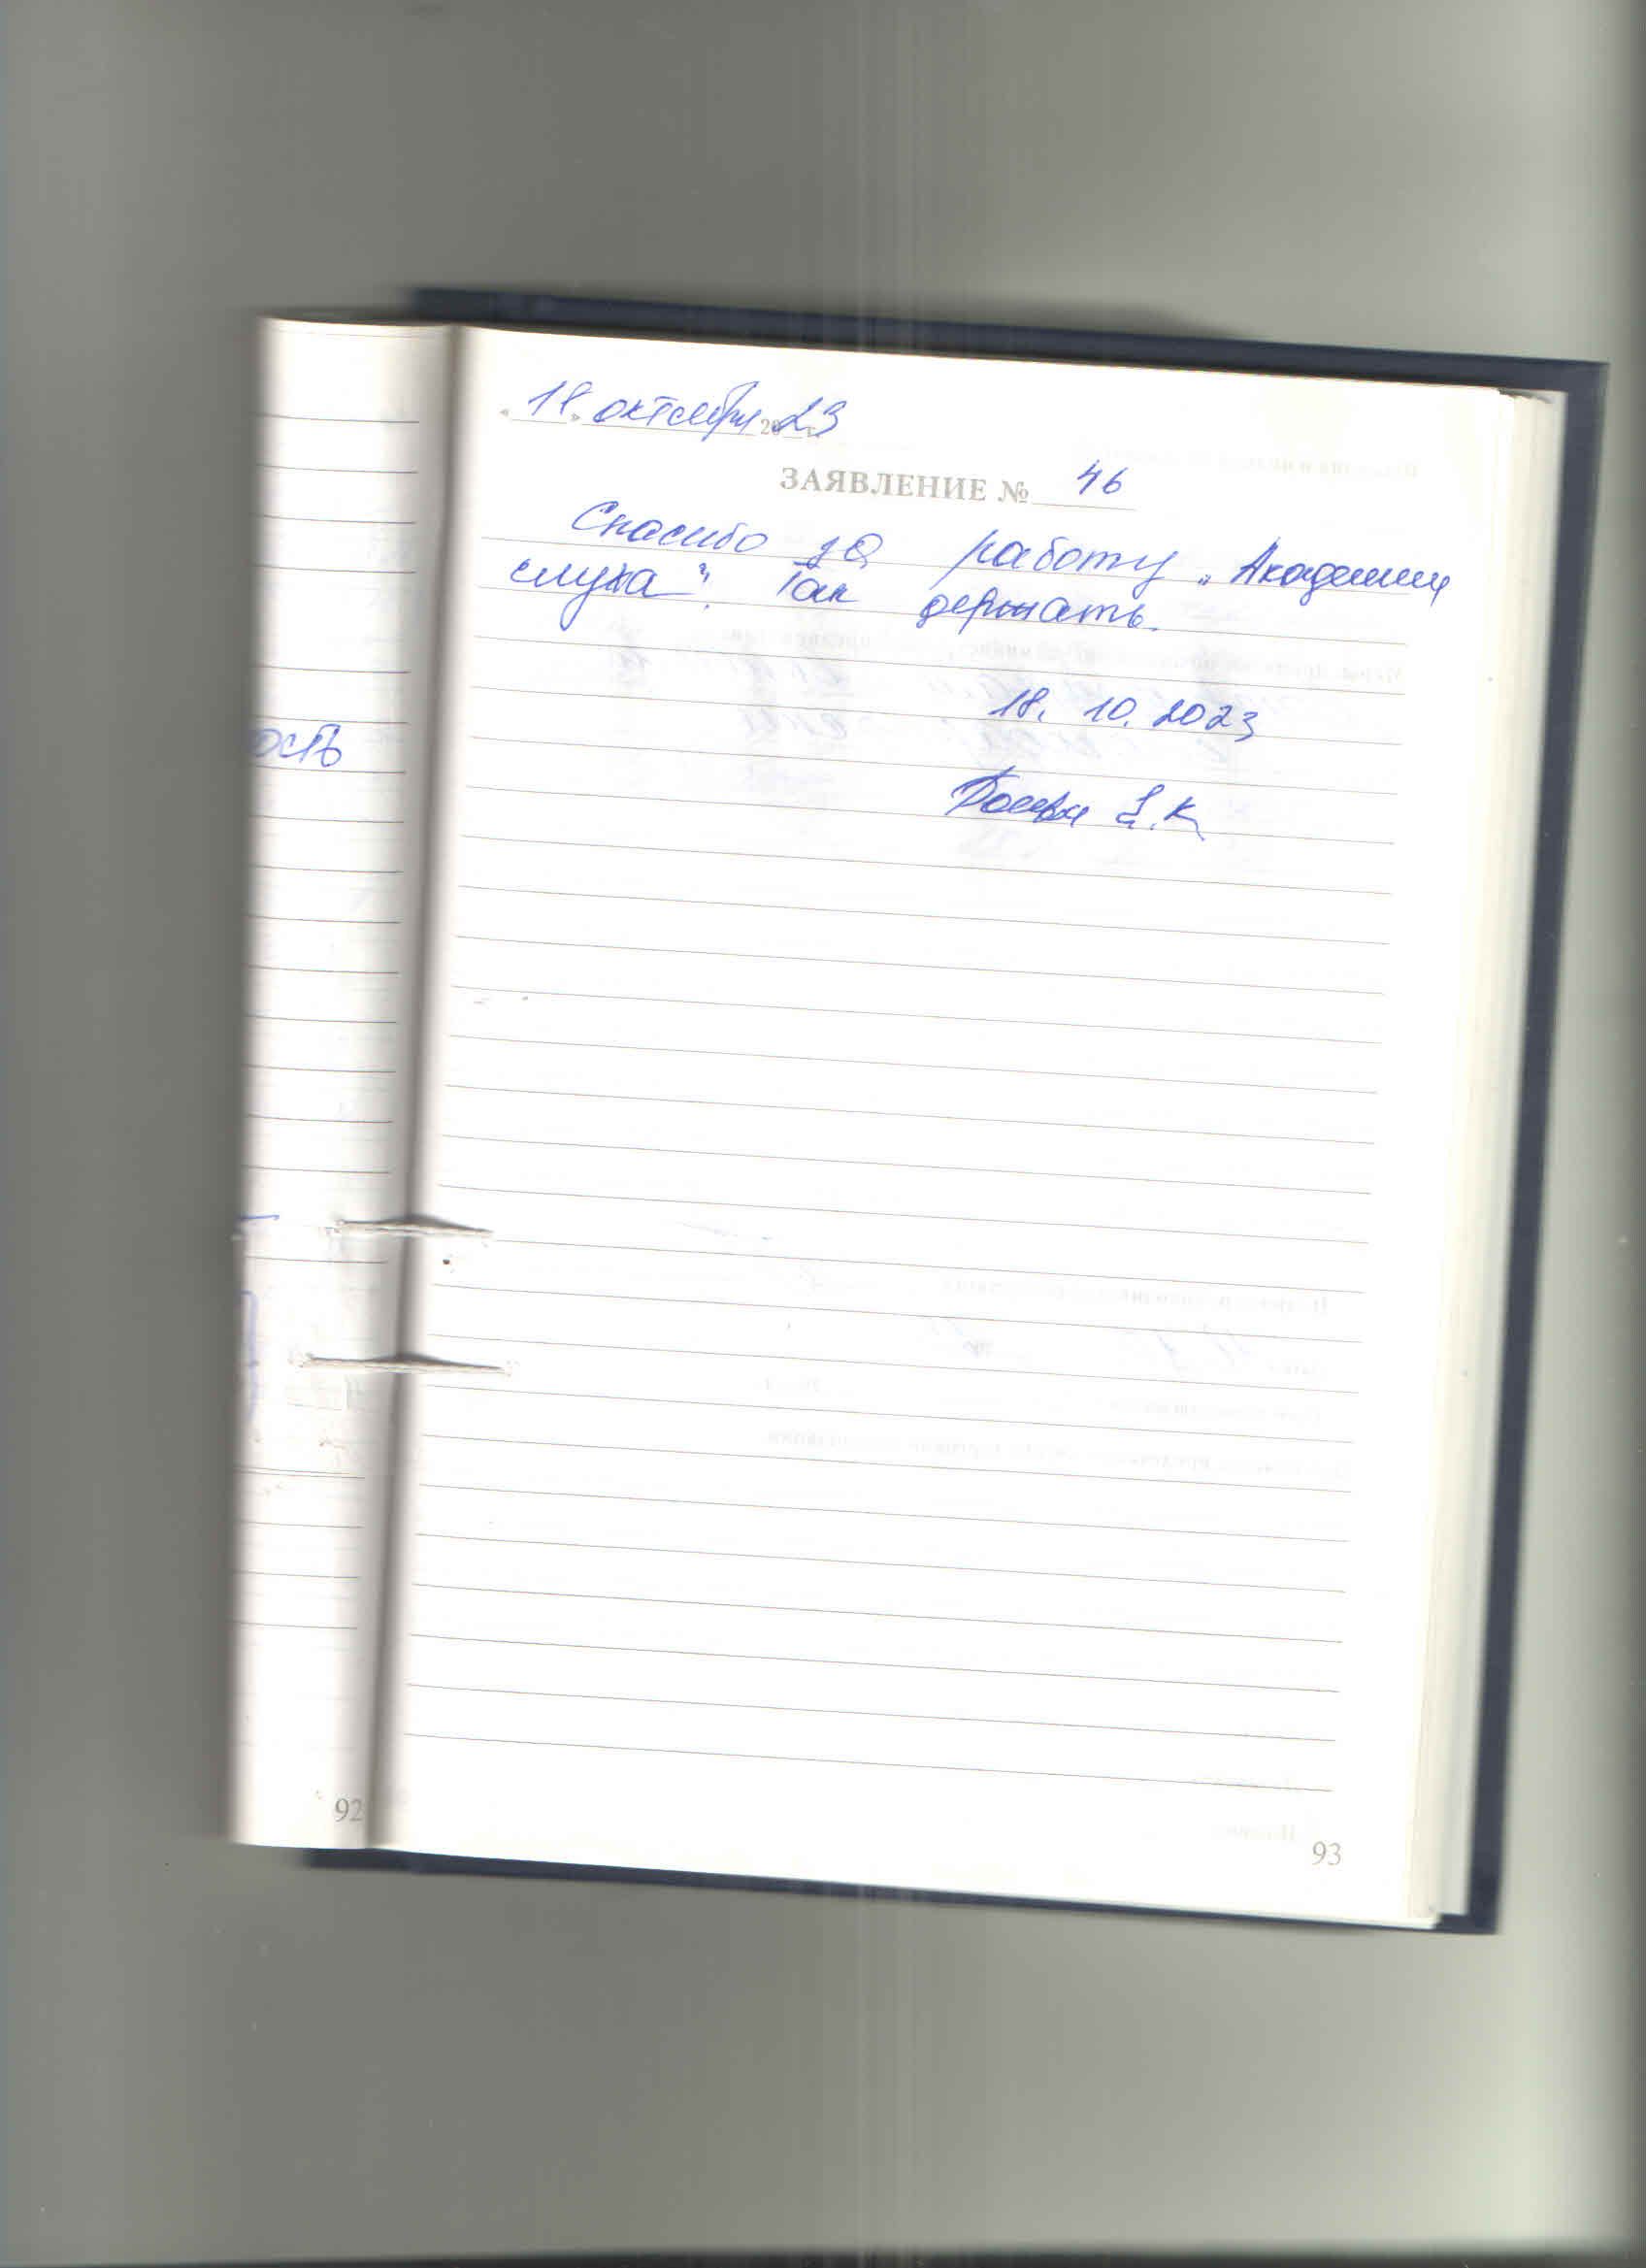 « 18 » октября 2023
ЗАЯВЛЕНИЕ № 46
Спасибо за работу „Академии
слуха". Так держать.
18. 10. 2023
Е.К
ость
92
93